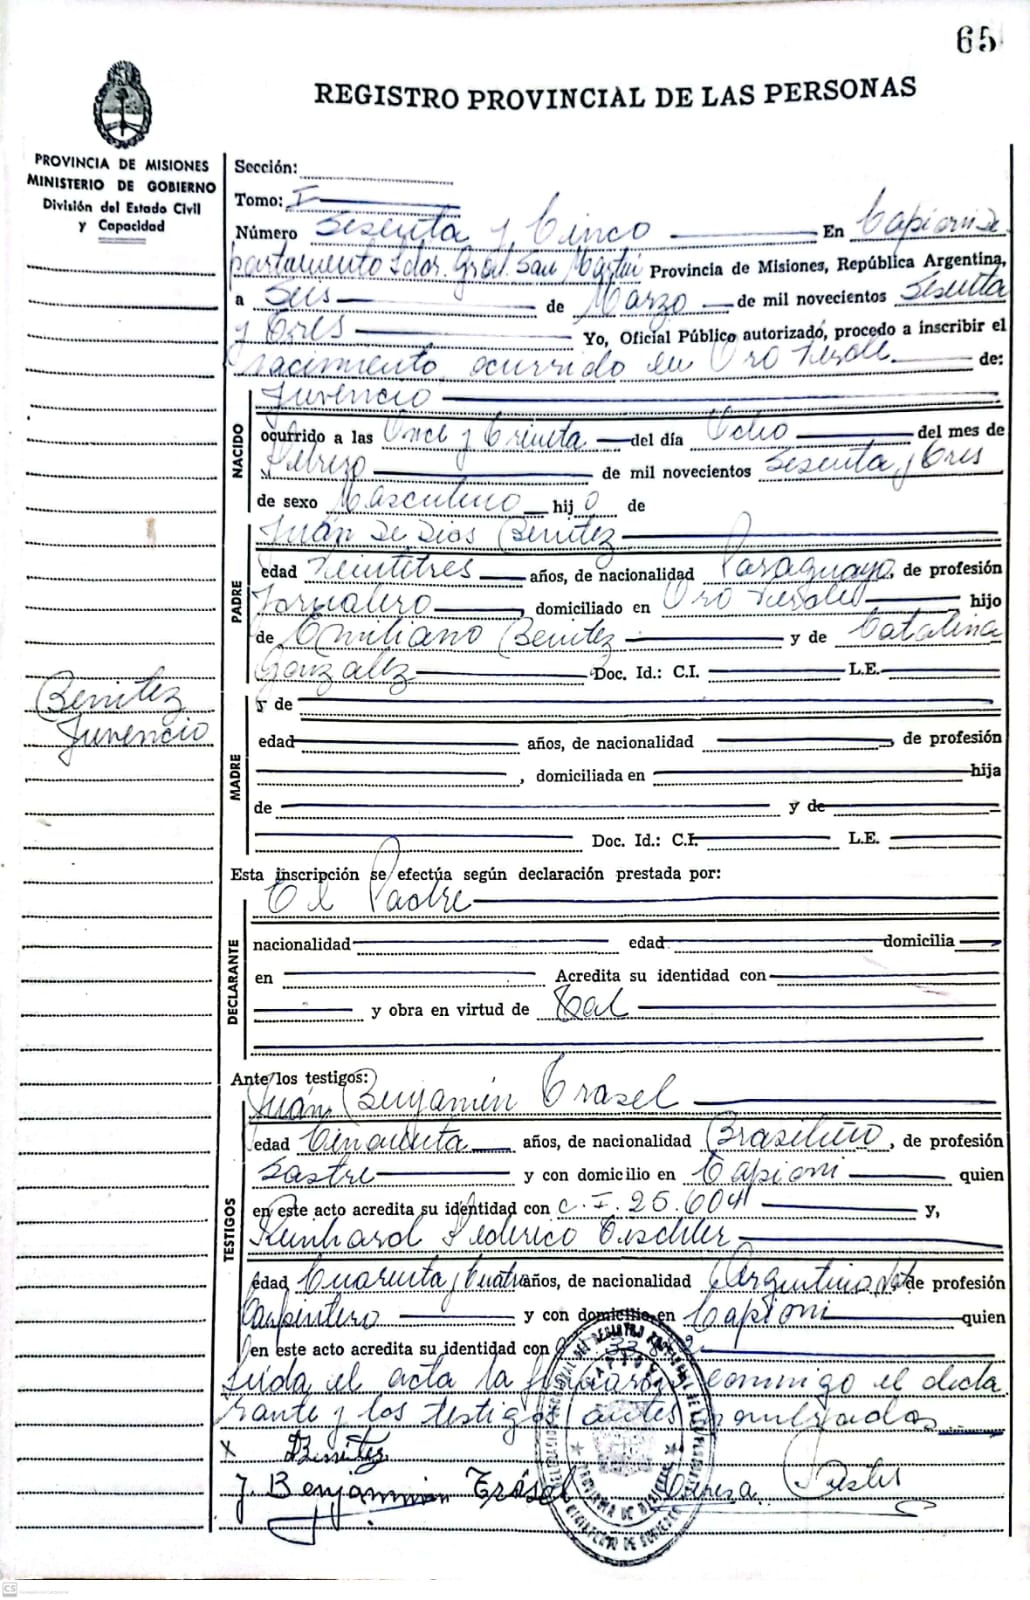 65
REGISTRO PROVINCIAL DE LAS PERSONAS
PROVINCIA DE MISIONES
MINISTERIO DE GOBIERNO
División del Estado Civil
y Capacidad
Sección:
Tomo: I
Número Sesenta y Cinco En Capiovi De-
partamento Ldor. Gral. San Martín Provincia de Misiones, República Argentina,
a Seis de Marzo de mil novecientos Sesenta
y Tres Yo, Oficial Público autorizado, procedo a inscribir el
nacimiento ocurrido en Oro Verde de:
NACIDO
Juvencio
ocurrido a las Once y Treinta del día Ocho del mes de
Febrero de mil novecientos Sesenta y Tres
de sexo Masculino hijo de
PADRE
Juán De Dios Benitez
edad Veintitres años, de nacionalidad Paraguaya, de profesión
Jornalero, domiciliado en Oro Verde hijo
de Emiliano Benitez y de Catalina
Gonzalez Doc. Id.: C.I. L.E.
Benitez
Juvencio
MADRE
y de
edad años, de nacionalidad , de profesión
, domiciliada en hija
de y de
Doc. Id.: C.I. L.E.
Esta inscripción se efectúa según declaración prestada por:
DECLARANTE
El Padre
nacionalidad edad domicilia
en Acredita su identidad con
y obra en virtud de Tal
Ante los testigos:
TESTIGOS
Juán Benjamin Trasel
edad Cincuenta años, de nacionalidad Brasileño, de profesión
Sastre y con domicilio en Capiovi quien
en este acto acredita su identidad con C.I. 25.604 y,
Reinhard Federico Tischler
edad Cuarenta y Cuatro años, de nacionalidad Argentino Nat. de profesión
Carpintero y con domicilio en Capiovi quien
en este acto acredita su identidad con
Leida el acta la firmaron conmigo el decla
rante y los testigos antes nombrados
x Benitez
J. Benjamin Trásel
PROVINCIA DE MISIONES